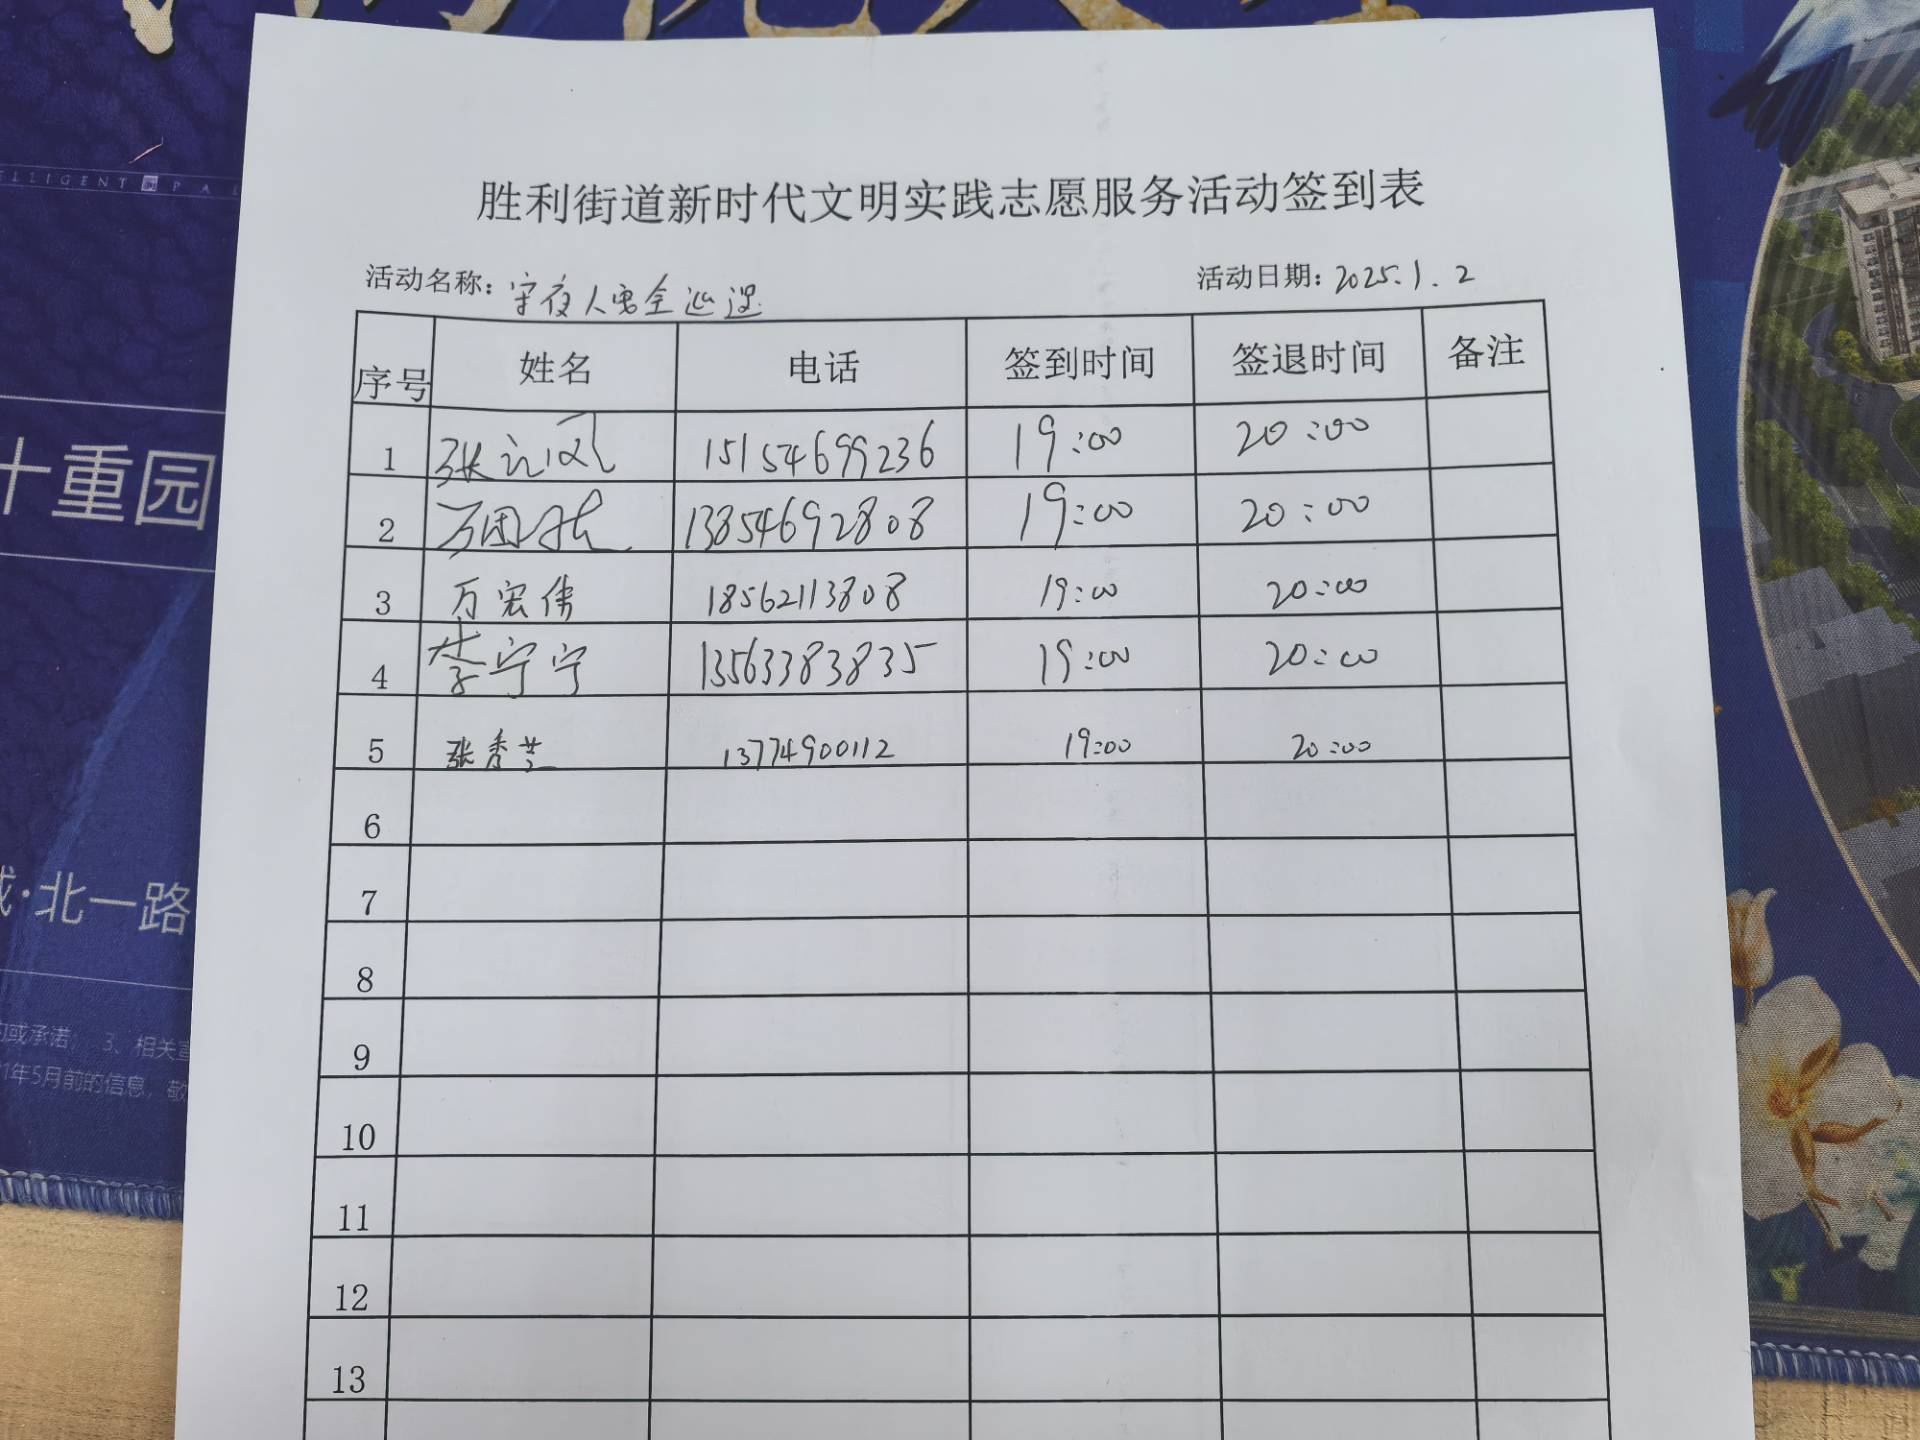 TELLIGENT PAL
十重园
城·北一路
的或承诺; 3、相关宣
21年5月前的信息,敬
胜利街道新时代文明实践志愿服务活动签到表
活动名称:守夜人安全巡逻 活动日期:2025.1.2
序号 姓名 电话 签到时间 签退时间 备注
1 张 15154699236 19:00 20:00
2 万国 13854692808 19:00 20:00
3 万宏伟 18562113808 19:00 20:00
4 李宁宁 13563383835 19:00 20:00
5 张秀芝 13774900112 19:00 20:00
6
7
8
9
10
11
12
13